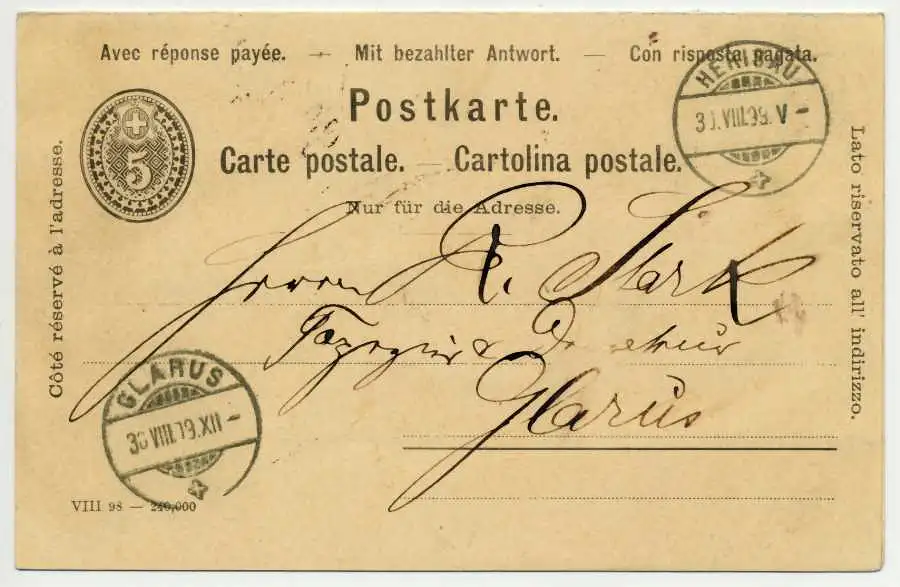 Avec réponse payée. — Mit bezahlter Antwort. — Con risposta pagata.
Postkarte.
Carte postale. — Cartolina postale.
Nur für die Adresse.
Côté réservé à l'adresse.
Lato riservato all' indirizzo.
5
HERISAU
VIII. V –
Herrn R. Stark
&
Glarus
GLARUS
VIII. XII –
VIII 98 — 240,000